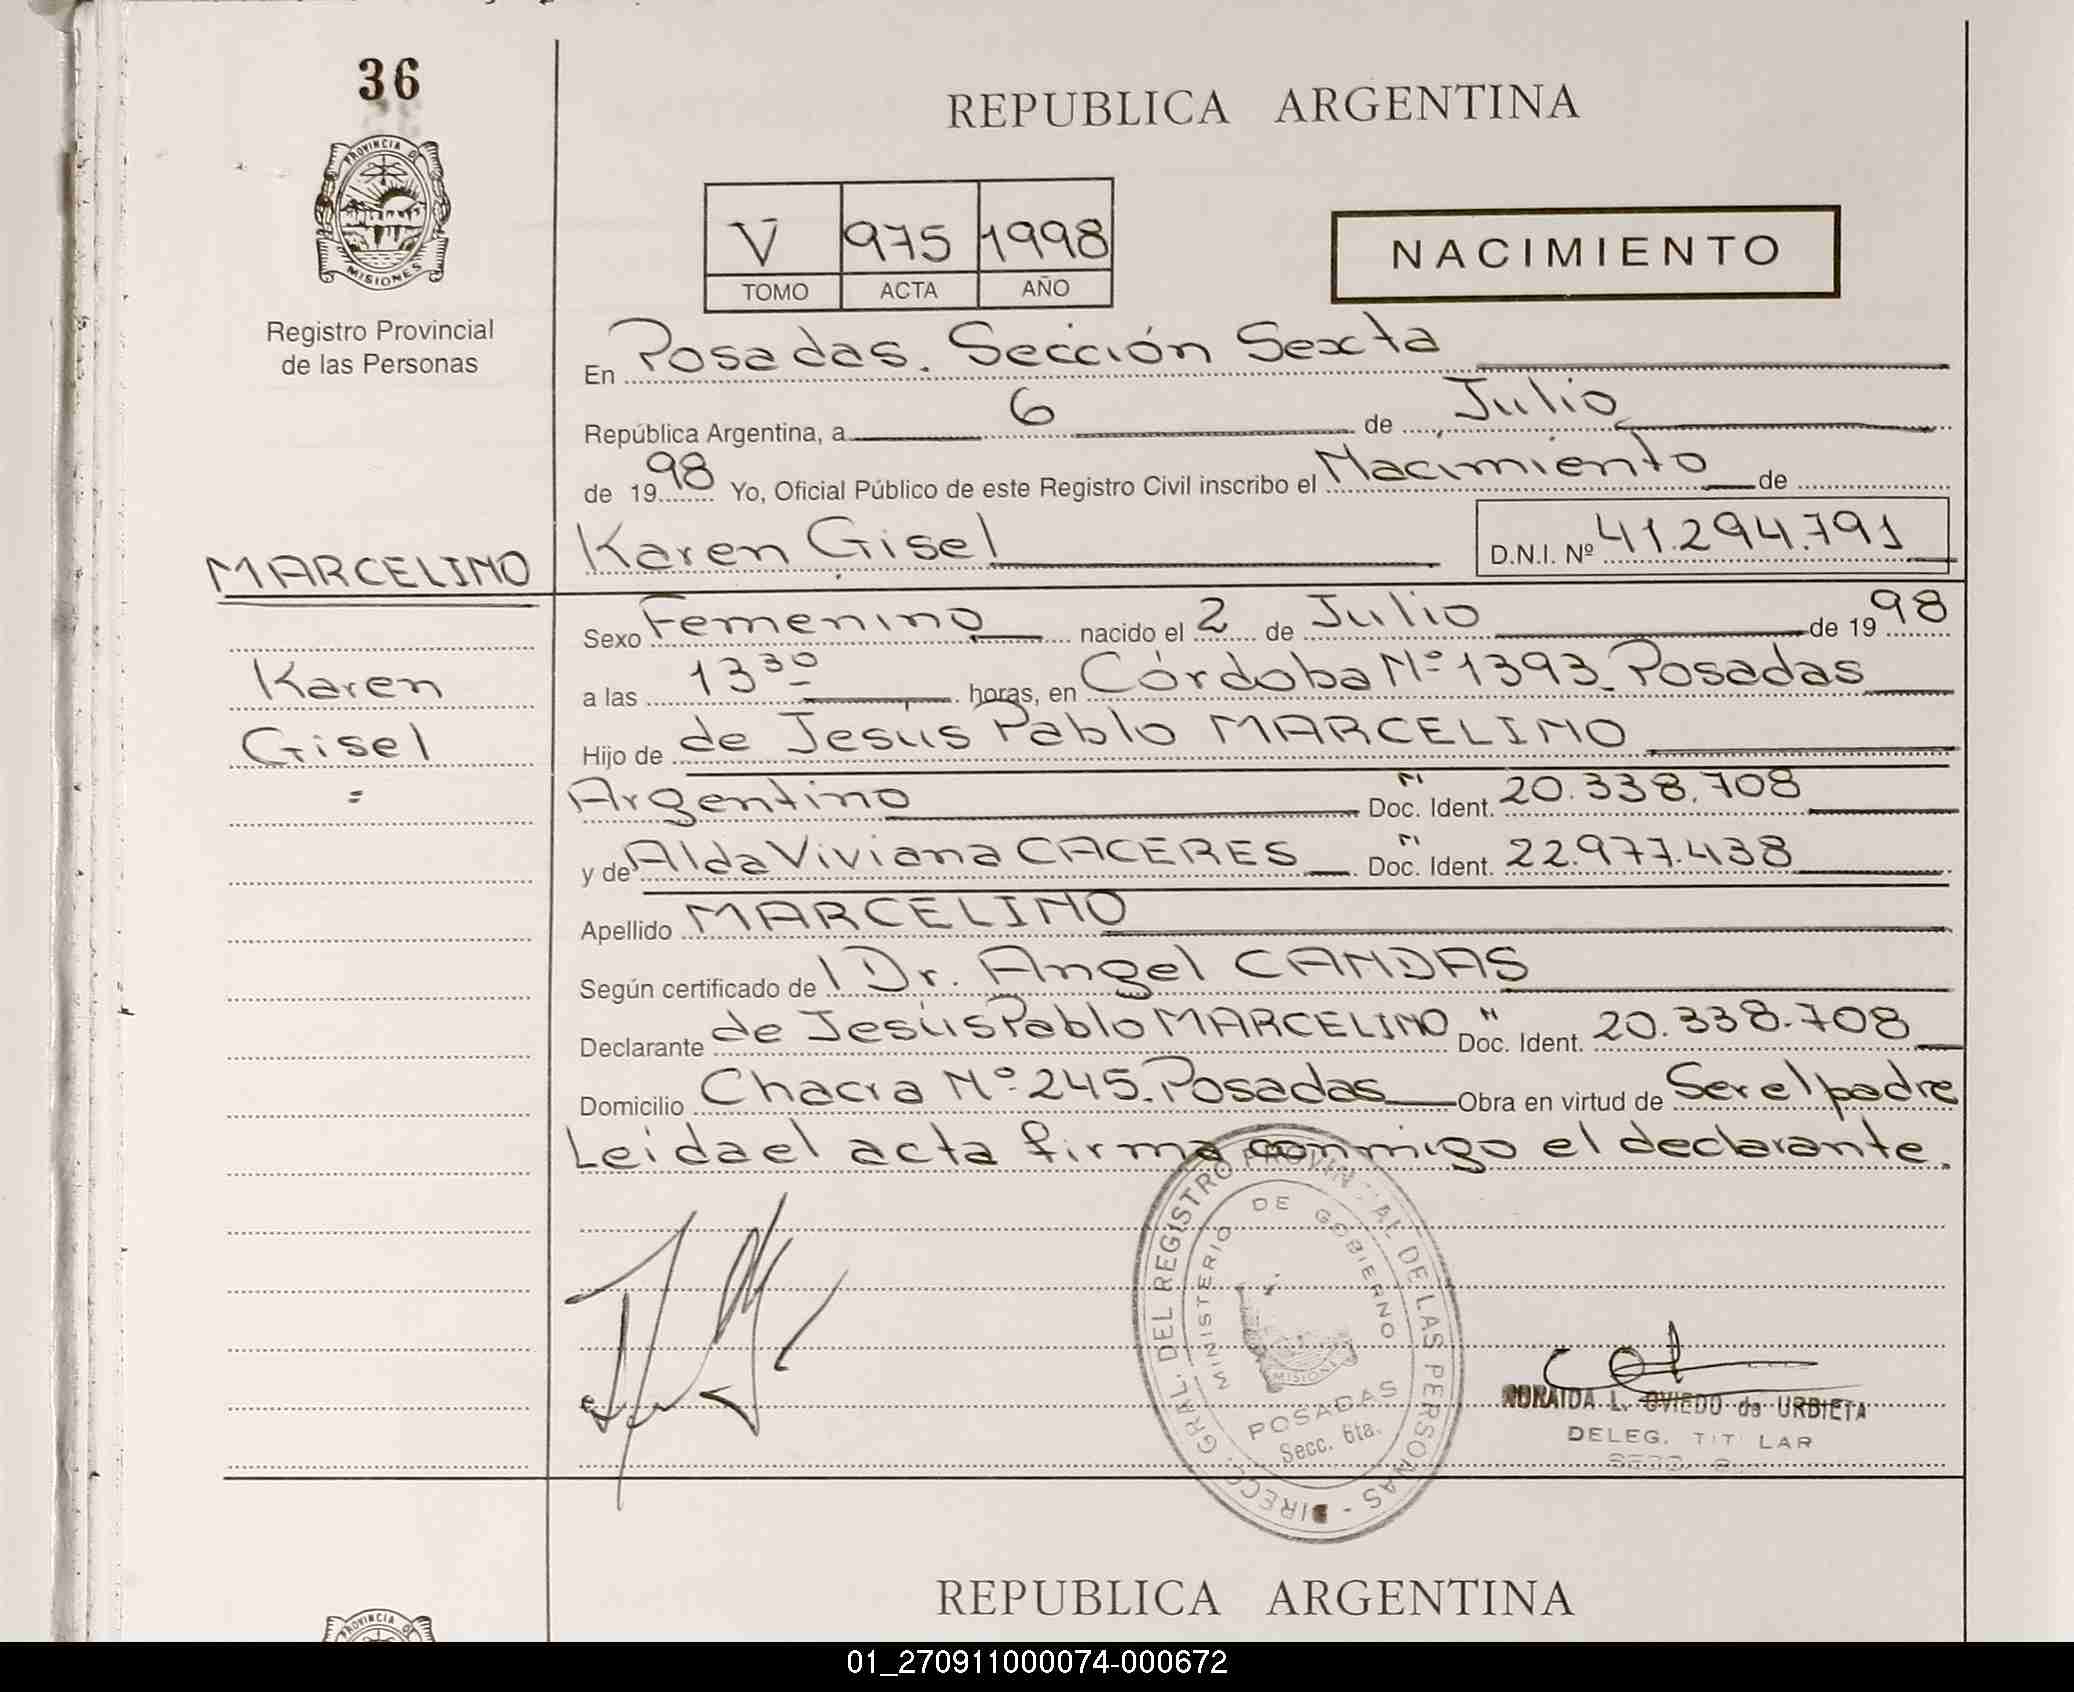 36
PROVINCIA DE
MISIONES
Registro Provincial
de las Personas
REPUBLICA ARGENTINA
V 975 1998
TOMO ACTA AÑO
NACIMIENTO
En Posadas. Sección Sexta
República Argentina, a 6 de Julio
de 1998 Yo, Oficial Público de este Registro Civil inscribo el Nacimiento de
Karen Gisel D.N.I. Nº 41.294.791
MARCELINO
Karen
Gisel
=
Sexo Femenino nacido el 2 de Julio de 1998
a las 13 30 horas, en Córdoba Nº 1393. Posadas
Hijo de de Jesús Pablo MARCELINO
Argentino Doc. Ident. 20.338.708
y de Alda Viviana CACERES Doc. Ident. 22.977.438
Apellido MARCELINO
Según certificado de l Dr. Angel CANDAS
Declarante de Jesús Pablo MARCELINO Doc. Ident. 20.338.708
Domicilio Chacra Nº 245. Posadas Obra en virtud de Ser el padre
Leida el acta firma conmigo el declarante.
DIRECC. GRAL. DEL REGISTRO PROVINCIAL DE LAS PERSONAS -
MINISTERIO DE GOBIERNO
MISIONES
POSADAS
Secc. 6ta.
L. OVIEDO de URBIETA
DELEG. TIT LAR
REPUBLICA ARGENTINA
PROVINCIA DE
01_270911000074-000672